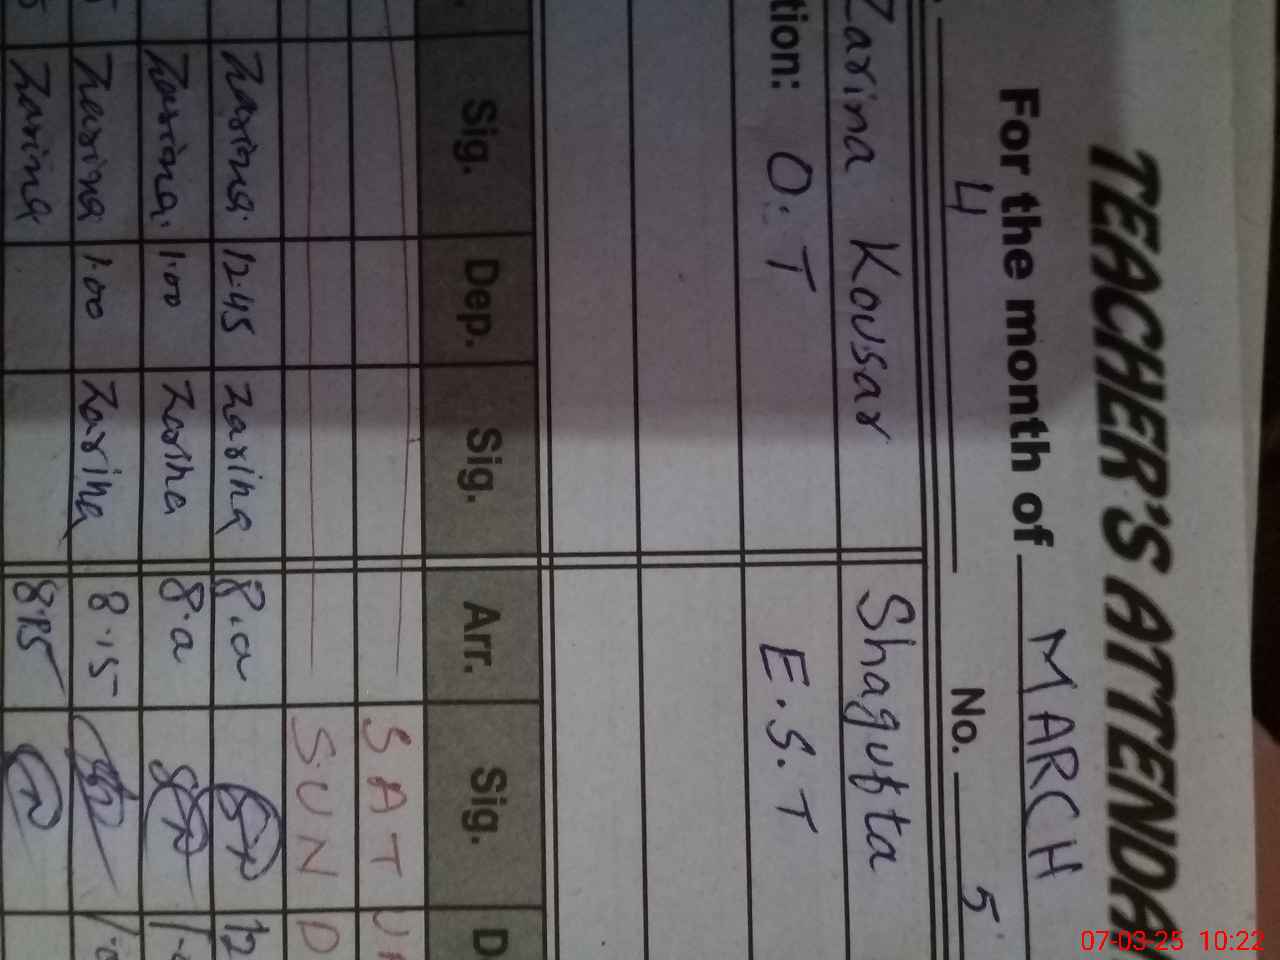 TEACHER'S ATTENDA
For the month of MARCH
4 No. 5
Zarina Kousar Shagufta
tion: O.T E.S.T
Sig. Dep. Sig. Arr. Sig. D
SAT
SUND
Zarina. 12.45 Zarina 8.a 12
Zarina. 1.00 Zarina 8.a
Zarina 1.00 Zarina 8.15
Zarina 8.15
07-03-25 10:22